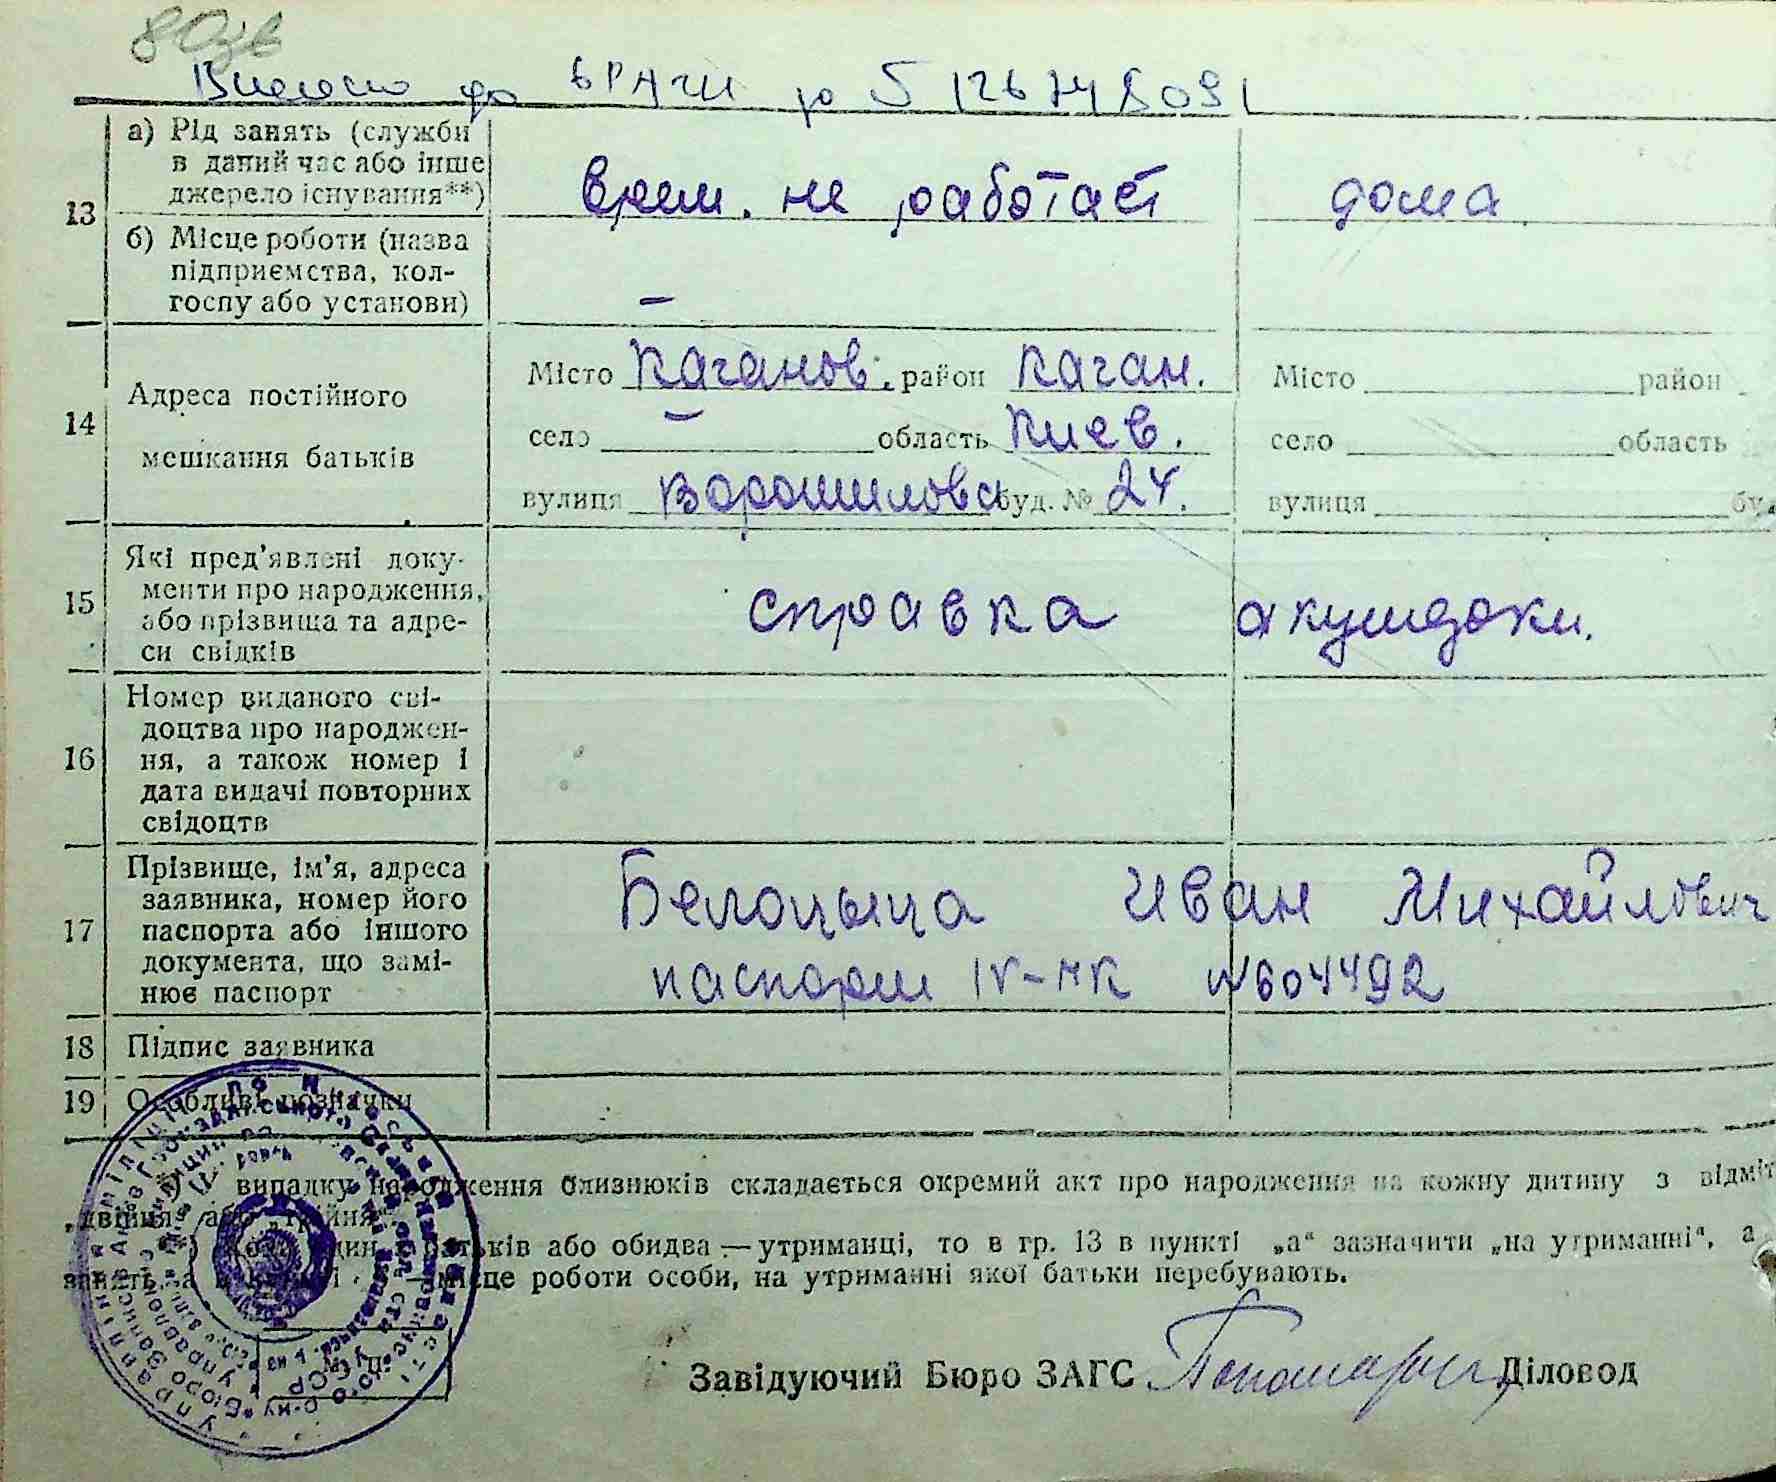 80зв
Внесено до ВРАЦИ до 5 126748091
13
а) Рід занять (служби
в даний час або інше
джерело існування**)
врем. не работает дома
б) Місце роботи (назва
підприємства, кол-
госпу або установи)
–
14
Адреса постійного
мешкання батьків
Місто Каганов. район Каган. Місто район
село – область Киев. село область
вулиця Ворошилова буд. № 24. вулиця бу
15
Які пред’явлені доку-
менти про народження,
або прізвища та адре-
си свідків
справка акушерки.
16
Номер виданого сві-
доцтва про народжен-
ня, а також номер і
дата видачі повторних
свідоцтв
17
Прізвище, ім’я, адреса
заявника, номер його
паспорта або іншого
документа, що замі-
нює паспорт
Белоцыца Иван Михайлович
паспорт IV-НК №604492
18 Підпис заявника
19 Особливі позначки
випадку народження близнюків складається окремий акт про народження на кожну дитину з відміт
„двійня“ або „трійня“
один батьків або обидва — утриманці, то в гр. 13 в пункті „а“ зазначити „на утриманні“, а
місце роботи особи, на утриманні якої батьки перебувають.
М. П.
Завідуючий Бюро ЗАГС Діловод